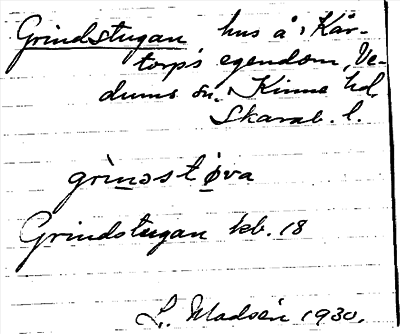 Grindstugan hus å Kår-
torps egendom, Ve-
dums sn. Kinne hd.
Skarab. l.
grìnəstøva
Grindstugan kb. 18
L. Madsén 1930.